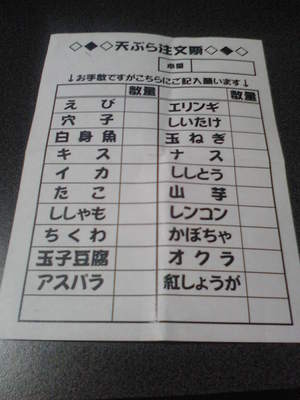 ◇◆◇天ぷら注文票◇◆◇
卓番
↓お手数ですがこちらにご記入願います↓
数量 数量
えび エリンギ
穴子 しいたけ
白身魚 玉ねぎ
キス ナス
イカ ししとう
たこ 山芋
ししゃも レンコン
ちくわ かぼちゃ
玉子豆腐 オクラ
アスパラ 紅しょうが